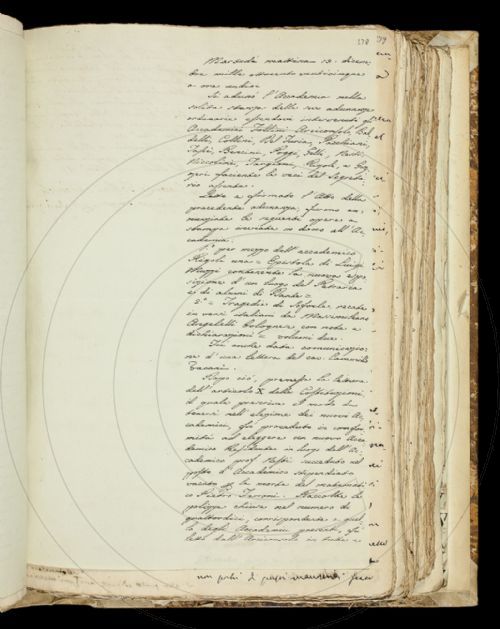 Martedì mattina 13. dicem
bre mille ottocento venticinque
a ore undici
Si adunò l'Accademia nella
solita stanza delle sue adunanze
ordinarie essendovi intervenuti gli
Accademici Follini Arciconsolo, Bal
delli, Collini, Del Furia,
Bencini, Poggi,
Niccolini, Targioni, Rigoli, e
geri facente le veci del Segreta
rio assente.
Letto e affirmato l'Atto della
precedente adunanza, furono an
nunziate le seguenti opere a
stampa inviate in dono all'Ac
cademia.
1.° per mezzo dell'accademico
Rigoli una = Epistola di Luigi
Muzzi contenente la nuova espo
sizione d'un luogo del Petrarca
e di alcuni di Dante =
2.° = Tragedie di Sofocle recate
in versi italiani da Massimiliano
Angelelli bolognese con note e
dichiarazioni = volumi due.
Fu anche data comunicazio
ne d'una lettera del cav. Cammillo
Dopo ciò, premessa la lettura
dell'articolo X delle Costituzioni
il quale prescrive il modo da
tenersi nell'elezione dei nuovi Ac
cademici, fu proceduto in confor
mità ad eleggere un nuovo Acca
demico Residente in luogo dell'Ac
cademico prof. succeduto nel
posto d'Accademico stipendiato
vacato per la morte del matemati
co Pietro Ferroni. Raccolte le
polizze chiuse nel numero di
quattordici, corrispondente a quel
lo degli Accademici presenti, fu
letto dall'Arciconsolo in tutte